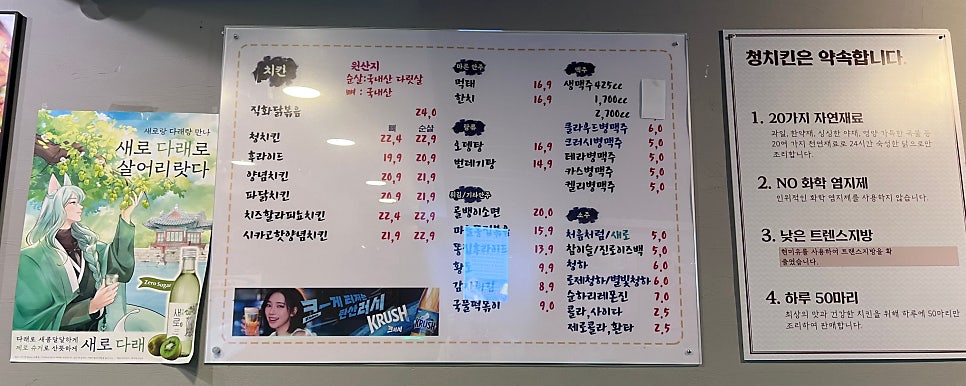 새로랑 다래랑 만나
새로 다래로
살어리랏다
Zero Sugar
새로
다래로 새콤달달하게
제로 슈거로 산뜻하게
새로 다래
치킨
원산지
순살:국내산 다릿살
뼈 : 국내산
직화닭볶음 24,0
뼈 순살
청치킨 22,4 22,9
후라이드 19,9 20,9
양념치킨 20,9 21,9
파닭치킨 20,9 21,9
치즈할라피뇨치킨 22,4 22,9
시카고핫양념치킨 21,9 22,9
크-게 터지는
탄산 러시
KRUSH
크러시
마른안주
먹태 16,9
한치 16,9
탕류
오뎅탕 16,9
번데기탕 14,9
튀김/기타안주
골뱅이소면 20,0
15,9
똥집후라이드 13,9
황도 9,9
감자튀김 8,9
국물떡볶이 9,0
맥주
생맥주 425cc
1,700cc
2,700cc
클라우드병맥주 6,0
크러시병맥주 5,0
테라병맥주 5,0
카스병맥주 5,0
켈리병맥주 5,0
소주
처음처럼/새로 5,0
참이슬/진로이즈백 5,0
청하 6,0
로제청하/별빛청하 6,0
순하리레몬진 7,0
콜라,사이다 2,5
제로콜라,환타 2,5
청치킨은 약속합니다.
1. 20가지 자연재료
과일, 한약재, 싱싱한 야채, 영양 가득한 곡물 등
20여 가지 천연재료로 24시간 숙성한 닭으로만
조리합니다.
2. NO 화학 염지제
인위적인 화학 염지제를 사용하지 않습니다.
3. 낮은 트랜스지방
현미유를 사용하여 트랜스지방을 확
줄였습니다.
4. 하루 50마리
최상의 맛과 건강한 치킨을 위해 하루에 50마리만
조리하여 판매합니다.